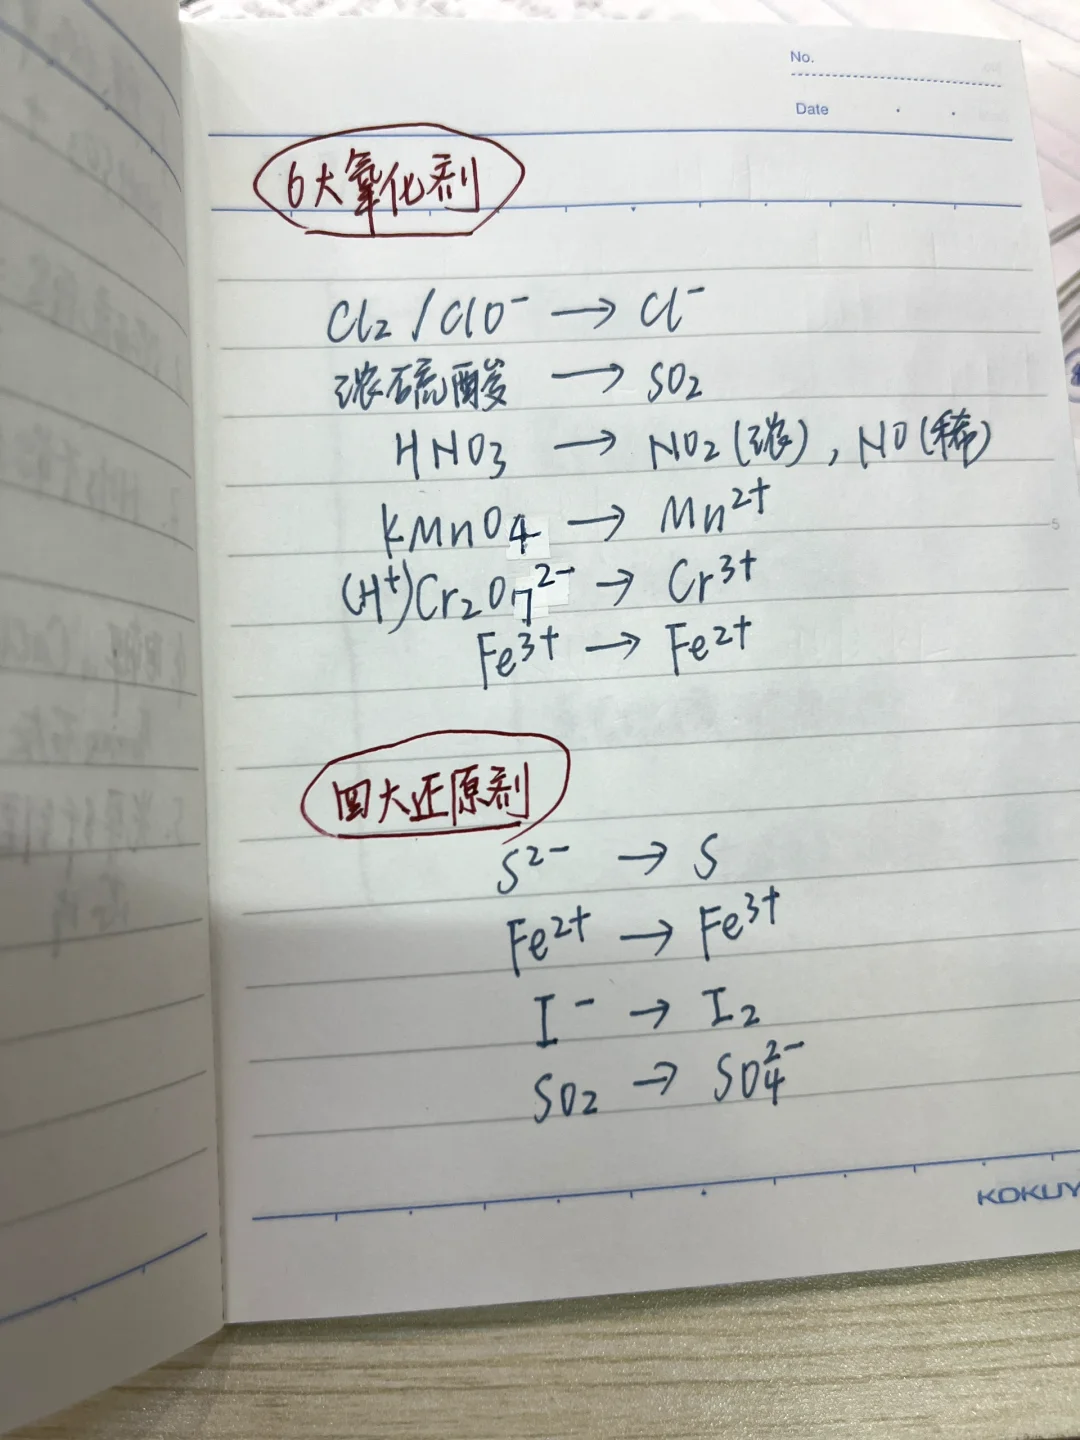 No.
Date
6大氧化剂
Cl₂ / ClO⁻ → Cl⁻
浓硫酸 → SO₂
HNO₃ → NO₂(浓), NO(稀)
KMnO₄ → Mn²⁺
(H⁺)Cr₂O₇²⁻ → Cr³⁺
5
Fe³⁺ → Fe²⁺
四大还原剂
S²⁻ → S
Fe²⁺ → Fe³⁺
I⁻ → I₂
SO₂ → SO₄²⁻
KOKUY